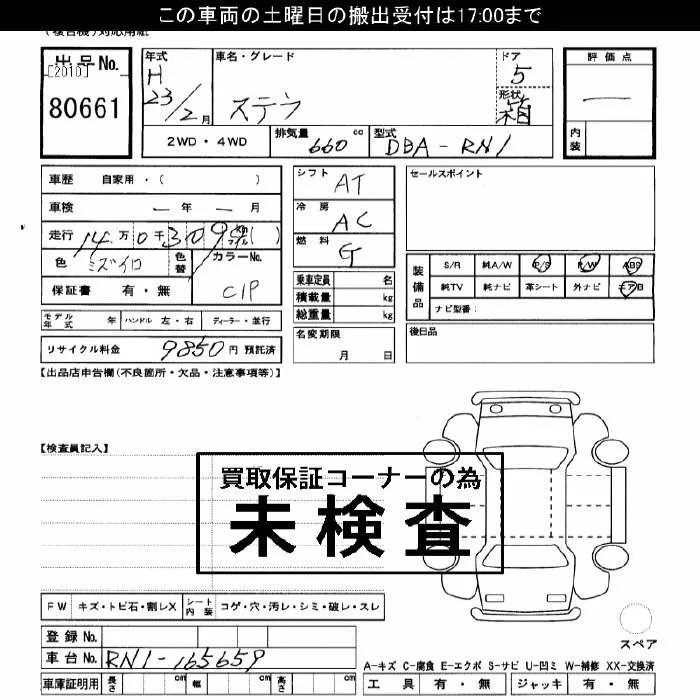 この車両の土曜日の搬出受付は17:00まで
(複合機)対応用紙
出品No. [2010] 80661
年式 H 23/2月
車名・グレード ステラ
ドア 5
形状 箱
評価点 —
内装
2WD・4WD
排気量 660 cc
型式 DBA-RN1
車歴 自家用・( )
車検 — 年 — 月
走行 14万0千309 km マイル ( )
色 ミズイロ 色替
カラーNo. CIP
保証書 有・無
シフト AT
冷房 AC
燃料 G
乗車定員 名
積載量 kg
総重量 kg
セールスポイント
装備品
S/R 純A/W P/S P/W ABS
純TV 純ナビ 革シート 外ナビ エアB
ナビ型番:
モデル年式 年 ハンドル 左・右 ディーラー・並行
リサイクル料金 9850円 預託済
名変期限 月 日
後日品
【出品店申告欄(不良箇所・欠品・注意事項等)】
【検査員記入】
買取保証コーナーの為
未検査
FW キズ・トビ石・割レX シート内装 コゲ・穴・汚レ・シミ・破レ・スレ
登録No.
車台No. RN1-165659
車庫証明用 長さ cm 幅 cm 高さ cm
スペア
A-キズ C-腐食 E-エクボ S-サビ U-凹ミ W-補修 XX-交換済
工具 有・無 ジャッキ 有・無